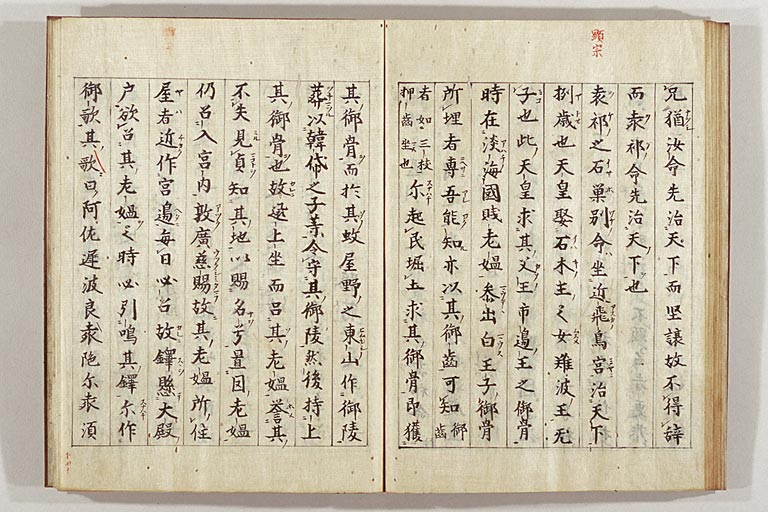 顕宗
兄猶汝命先治天下而堅譲故不得辞
而袁祁命先治天下也
袁祁之石巣別命坐近飛鳥宮治天下
捌歳也天皇娶石木王之女難波王无
子也此天皇求其父王市邉王之御骨
時在淡海國賎老媼参出白王子御骨
所埋者専吾能知亦以其御歯可知御歯
者如三枝押歯坐也尓起民堀土求其御骨即獲
其御骨而於其蚊屋野之東山作御陵
葬以韓帒之子等令守其御陵然後持上
其御骨也故還上坐而召其老媼誉其
不失見貞知其地以賜名号置目老媼
仍召入宮内敦廣慈賜故其老媼所住
屋者近作宮邉毎日必召故鐸懸大殿
户欲召其老媼之時必引鳴其鐸尓作
御歌其歌曰阿佐遅波良袁陁尓袁湏